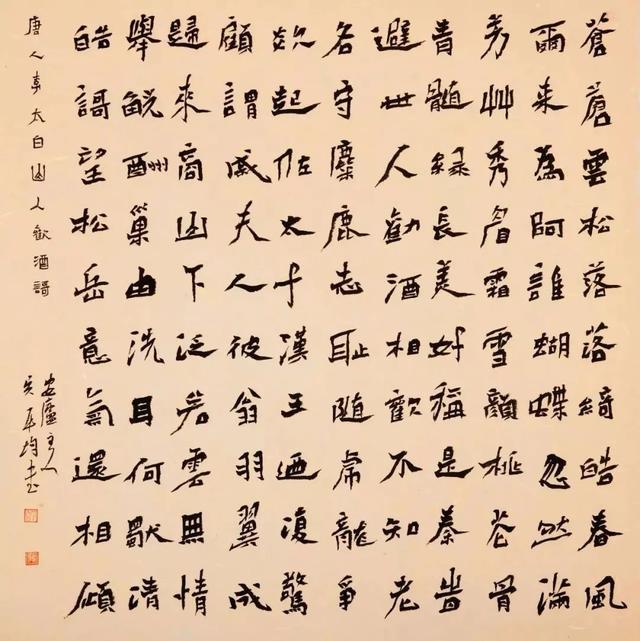 蒼蒼雲松落落綺皓春風
爾来為阿誰蝴蝶忽然滿
芳艸秀眉霜雪顏桃花骨
青髓綠長美好稱是秦時
避世人勸酒相歡不知老
名守麋鹿志恥随虎龍爭
欻起佐太子漢王迺復驚
顧謂戚夫人彼翁羽翼成
歸來商山下泛若雲無情
舉酬巢由洗耳何清
皓謌望松岳意氣還相傾
唐人李太白山人歡酒謌
主人